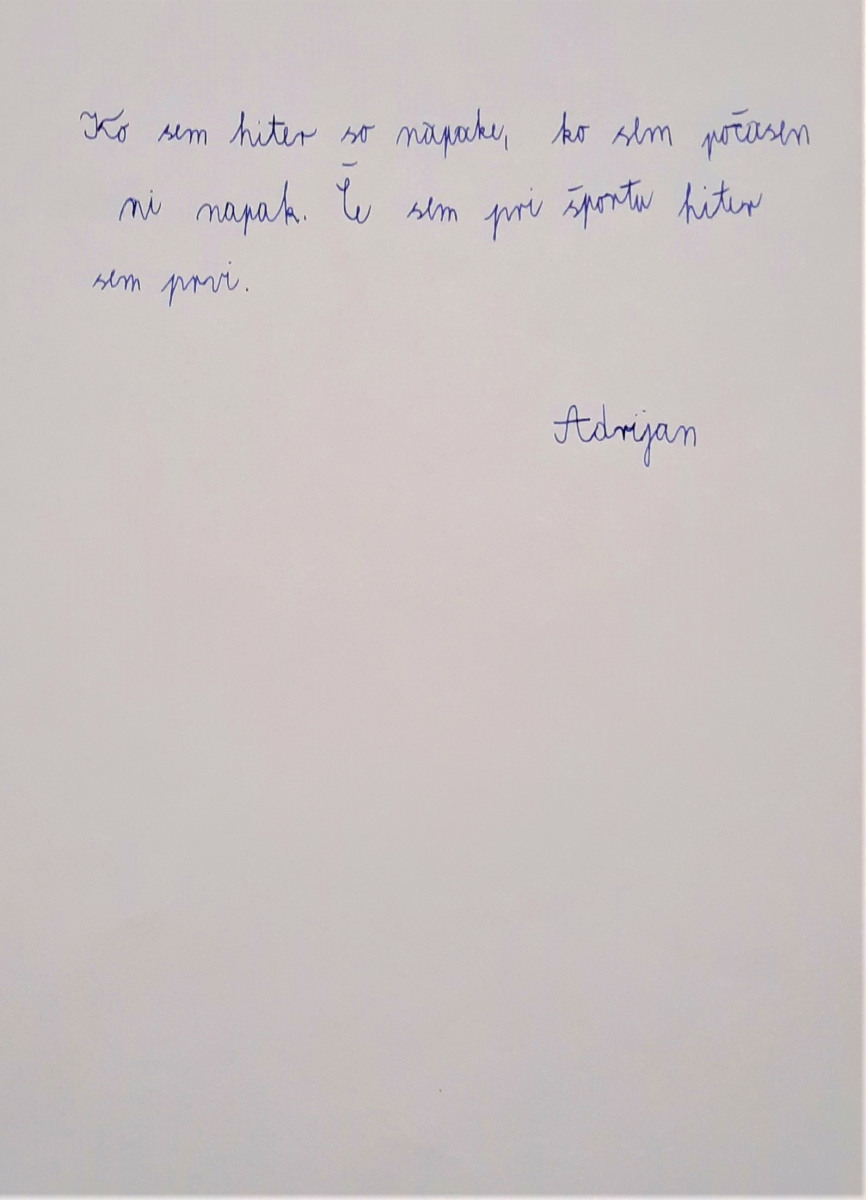 Ko sem hiter so napake, ko sem počasen
ni napak. Če sem pri športu hiter
sem prvi.
Adrijan